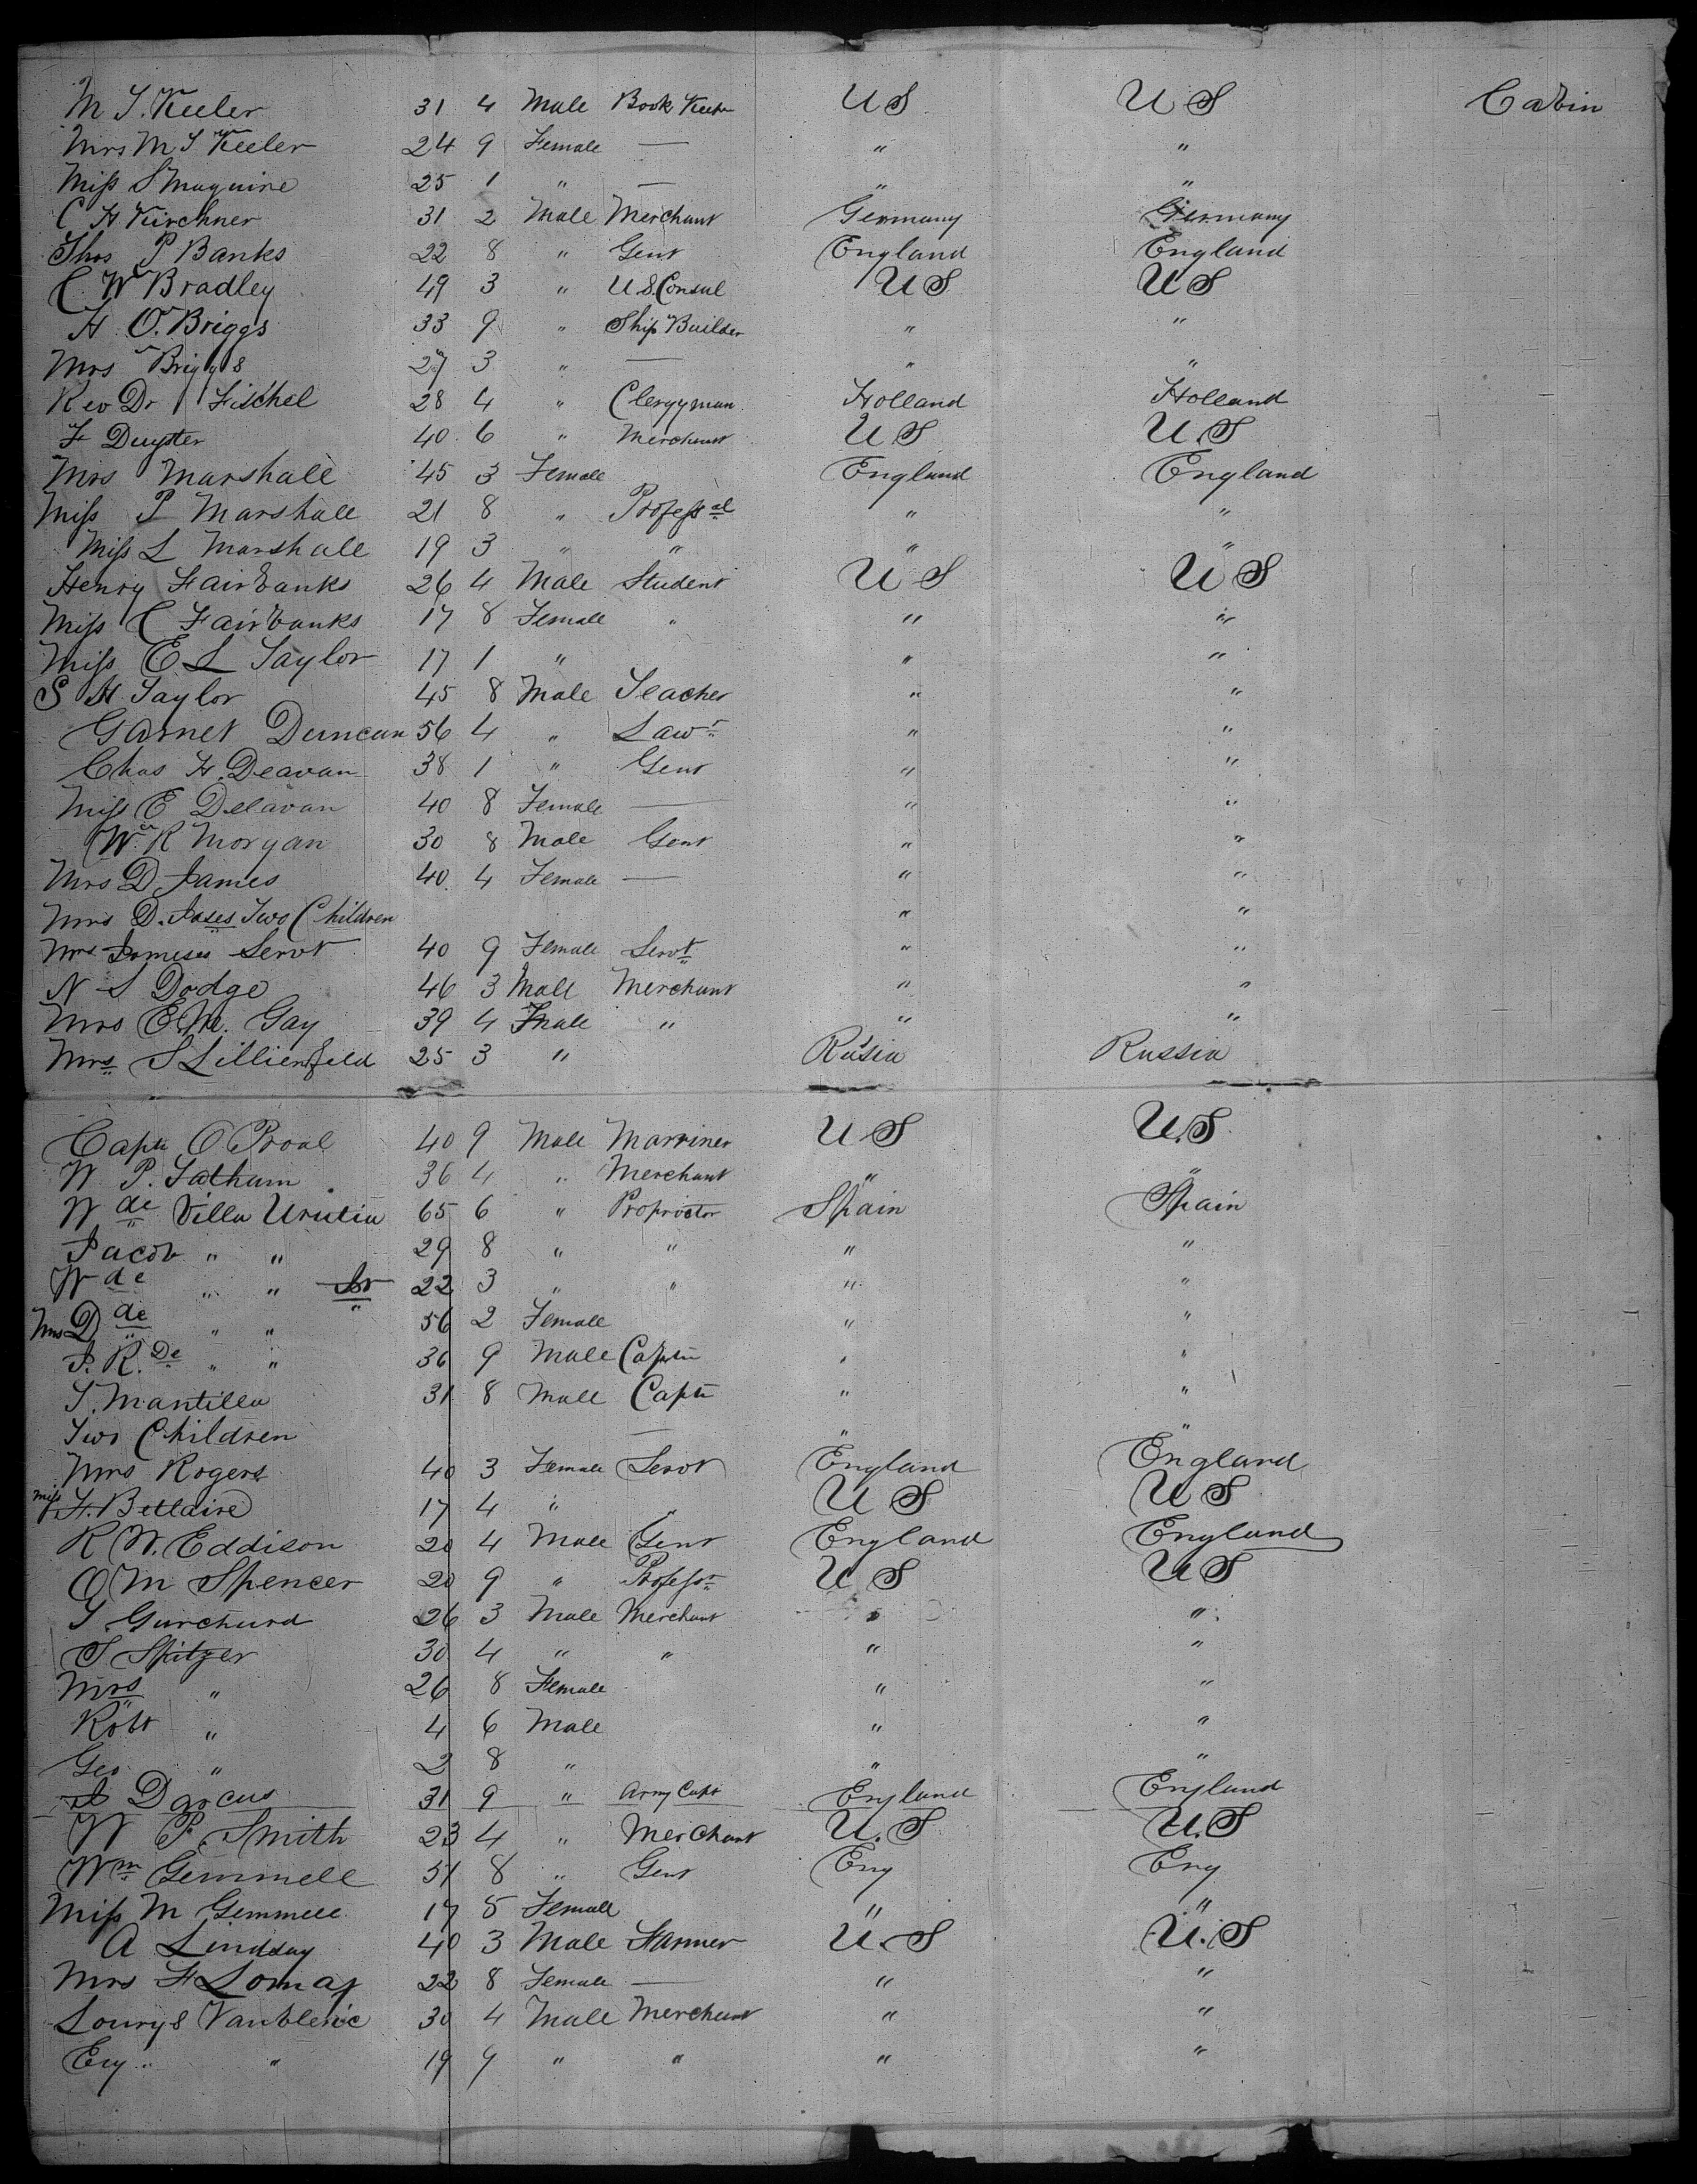 M S. Keeler 31 4 Male Book Keeper U S U S Cabin
Mrs M S Keeler 24 9 Female — " "
Miss S Maguire 25 1 " — " "
C H Kirchner 31 2 Male Merchant Germany Germany
Thos P Banks 22 8 " Gent England England
C W Bradley 49 3 " U S. Consul U S U S
H O. Briggs 33 9 " Ship Builder " "
Mrs Briggs 27 3 " — " "
Rev Dr Fischel 28 4 " Clergyman Holland Holland
F Duyster 40 6 " Merchant U S U. S
Mrs Marshall 45 3 Female England England
Miss P Marshall 21 8 " Professal " "
Miss L Marshall 19 3 " " " "
Henry Fairbanks 26 4 Male Student U S U S
Miss C Fairbanks 17 8 Female " " "
Miss E L Taylor 17 1 " " "
S H Taylor 45 8 Male Teacher " "
Garnet Duncan 56 4 " Lawr " "
Chas H. Deavan 38 1 " Gent " "
Miss E Delavan 40 8 Female — " "
Wm R Morgan 30 8 Male Gent " "
Mrs D James 40 4 Female — " "
Mrs D. Jases Two Children " "
Mrs Jameses Servt 40 9 Female Servt " "
N S Dodge 46 3 Male Merchant " "
Mrs E M. Gay 39 4 Fmale " " "
Mrs S Lillienfeld 25 3 " Rusia Russia
Captn O Proal 40 9 Male Marriner U S U. S
W P. Latham 36 4 " Merchant " "
W de Villa Urutia 65 6 " Proprietor Spain Spain
Jacob " " 29 8 " " " "
W de " " Jr 22 3 " " " "
Mrs D de " " 56 2 Female " "
J. R. De " " 36 9 Male Captn " "
S. Mantilla 31 8 Male Captn " "
Two Children — " "
Mrs Rogers 40 3 Female Servt England England
Miss F. Bellaire 17 4 " " U S U S
R W. Eddison 20 4 Male Gent England England
O M Spencer 20 9 " Professr U S U S
26 3 Male Merchant " "
S Spitzer 30 4 " " " "
Mrs " 26 8 Female " "
Robt " 4 6 Male " "
Geo " 2 8 " " "
Dorcus 31 9 " Army Capt England England
W P. Smith 23 4 " Merchant U. S U. S
Wm Gemmell 51 8 " Gent Eng Eng
Miss M Gemmell 17 5 Female " "
A Lindsay 40 3 Male Farmer U. S U. S
Mrs F Lomax 22 8 Female — " "
30 4 Male Merchant " "
" 19 9 " " " "